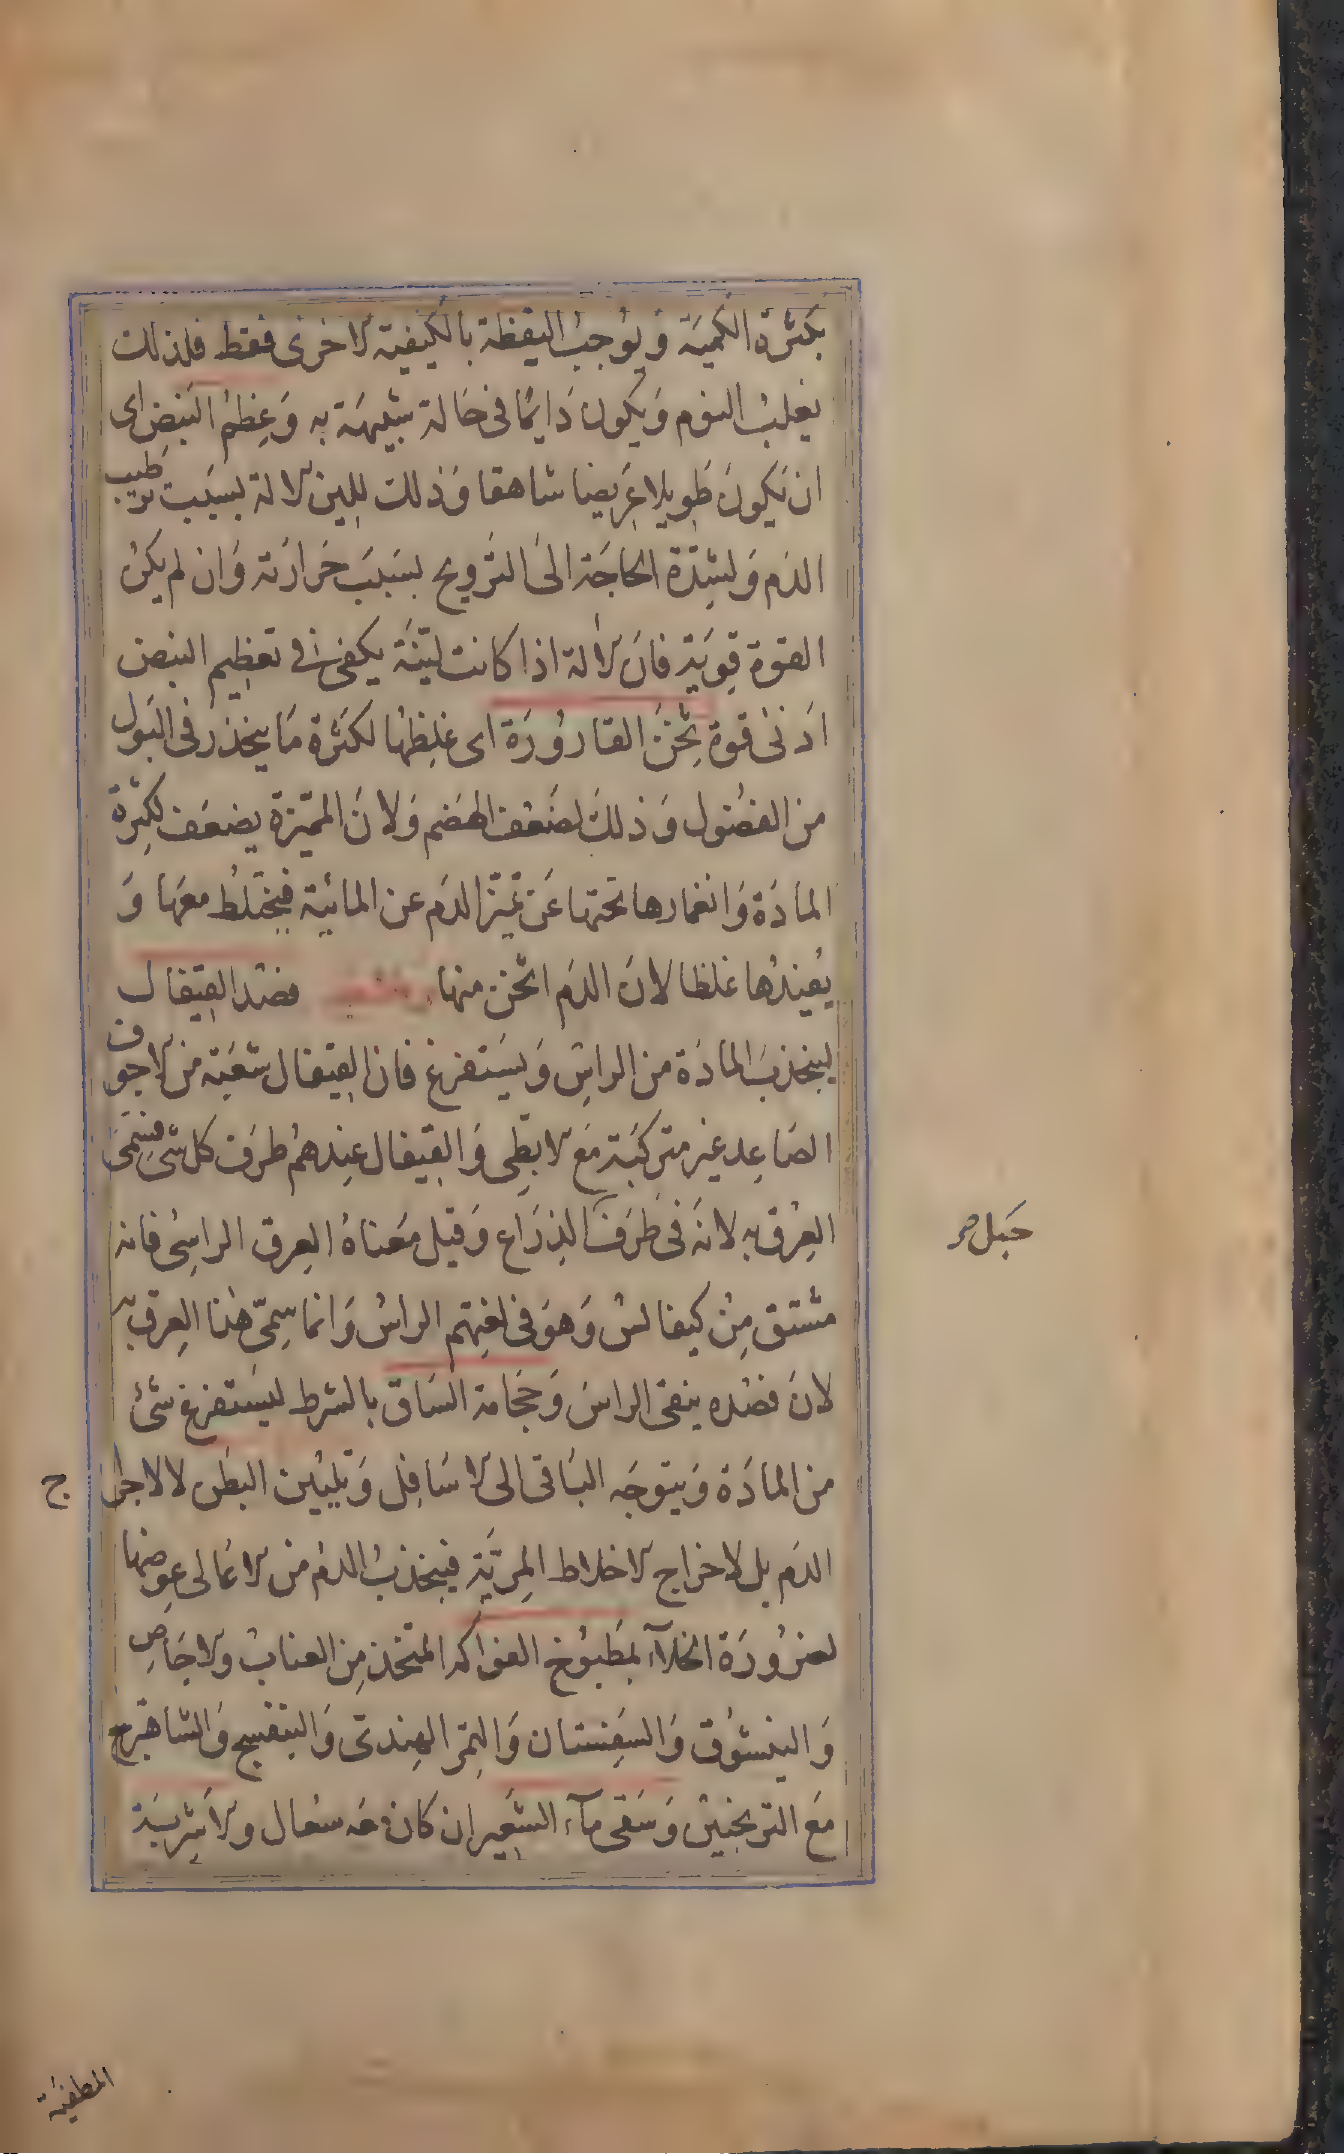 بكثرة الكمية ويوجب اليقظة بالكيفية الاخرى فقط فلذلك
يغلب النوم ويكون دايما فى حالة شبيهة به وعظم النبض اى
ان يكون طويلا عريضا شاهقا وذلك للين الالة بسبب ترطيب
الدم ولشدة الحاجة الى الترويح بسبب حرارته وان لم يكن
القوة قوية فان الالة اذا كانت لينة يكفى فى تعظيم النبض
ادنى قوة ثخن القارورة اى غلظها لكثرة ما ينجذر فى البول
من الفضول وذلك لضعف الهضم ولان المميزة يضعف لكثرة
المادة وانغمارها تحتها عن تميز الدم عن المائية فيختلط معها و
يفيدها غلظا لان الدم اثخن منها فصد القيفال
لينجذب المادة من الراس ويستفرغ فان القيفال شعبة من الاجوف
الصاعد غير متركبة مع الابطى والقيفال عندهم طرف كل شئ فسمى
العرق به لانه فى طرف الذراع وقيل معناه العرق الراسى فانه
حبل
مشتق من كيفالس وهو فى لغتهم الراس وانما سمى هذا العرق به
لان فصده ينقى الراس وحجامة الساق بالشرط ليستفرغ شئ
من المادة ويتوجه الباقى الى الاسافل وتليين البطن لا لاجل
ج
الدم بل لاخراج الاخلاط المرية فينجذب الدم من الاعالى عوضها
لضرورة الخلاء بمطبوخ الفواكه المتخذ من العناب والاجاص
والينشوق والسفستان والتمر الهندى والبنفسج والشاهترج
مع الترنجبين وسقى ماء الشعير ان كان معه سعال والاشربة
المطفية